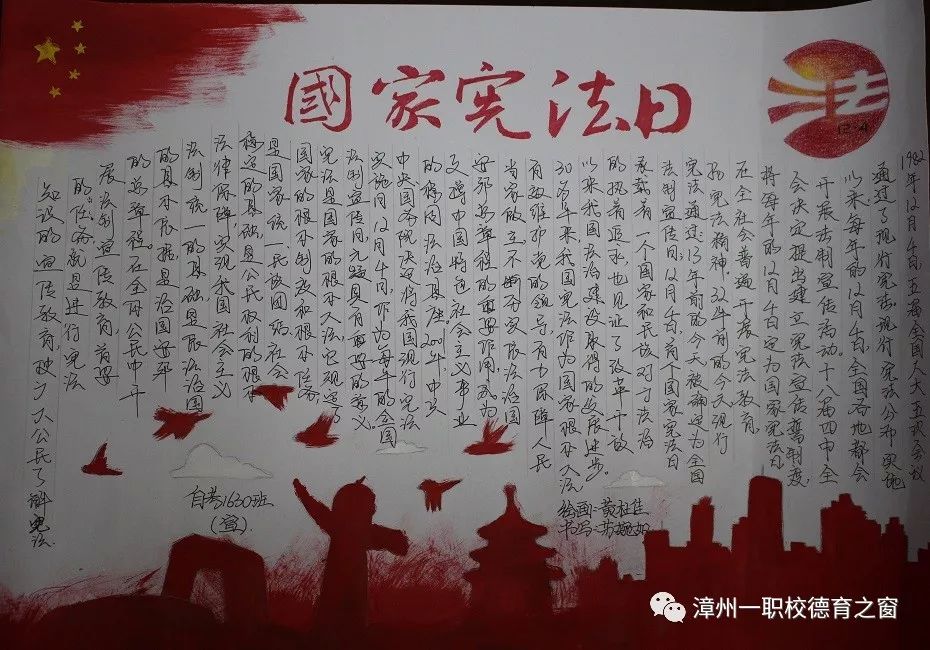 國家宪法日
法
12.4
1982年12月4日,五届全国人大五次会议
通过了现行宪法,现行宪法公布实施
以来,每年的12月4日,全国各地都会
开展法制宣传活动。十八届四中全
会决定提出建立宪法宣传誓制度,
将每年的12月4日定为国家宪法日
在全社会普遍开展宪法教育,
扬宪法精神。32年前的今天,现行
宪法通过;13年前的今天被确定为全国
法制宣传日;12月4日,首个国家宪法日
承载着一个国家和民族对于法治
的执着追求,也见证了改革开放
以来我国法治建设取得的发展进步。
30多年来,我国宪法作为国家根本大法
有效维护党的领导,有力保障人民
当家做主,不断夯实依法治国
安邦总章程的重要作用,成为
支撑中国特色社会主义事业
的稳固法治基座。2001年中共
中央、国务院决定将我国现行宪法
实施日12月4日,作为每年的全国
法制宣传日,尤其具有重要的意义。
宪法是国家的根本大法,它规定了
国家的根本制度和根本任务,
是国家统一、民族团结、社会
稳定的基础,是公民权利的根本
法律保障,实现我国社会主义
法制统一的基础,是依法治国
的基本依据,是治国安邦
的总章程。在全体公民中开
展法制宣传教育,首要
的任务就是进行宪法
知识的宣传教育,使广大公民了解宪法.
自考1630班
(宣)
绘画:黄
书写:苏
漳州一职校德育之窗